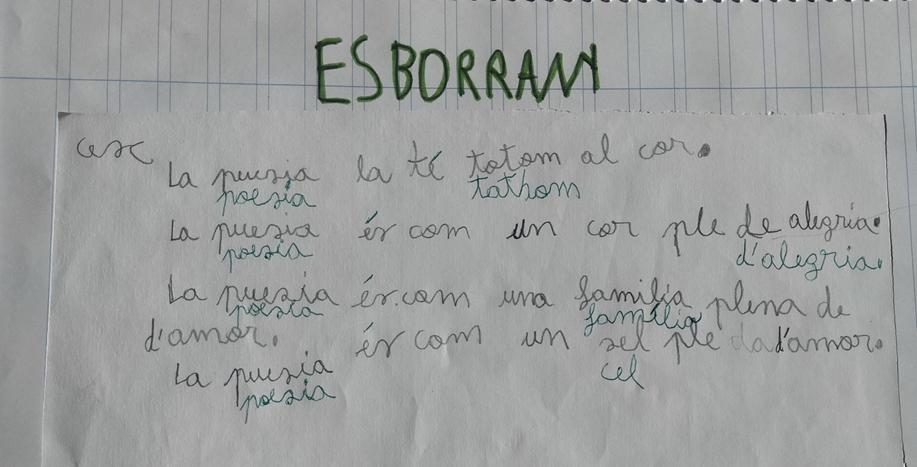 ESBORRANY
cesc
La puesia la té totom al cor.
poesia tothom
La puesia és com un cor ple de alegria.
poesia d'alegria.
La puesia és com una familia plena de
poesia família
d'amor. és com un sel ple da d'amor.
La puesia cel
poesia